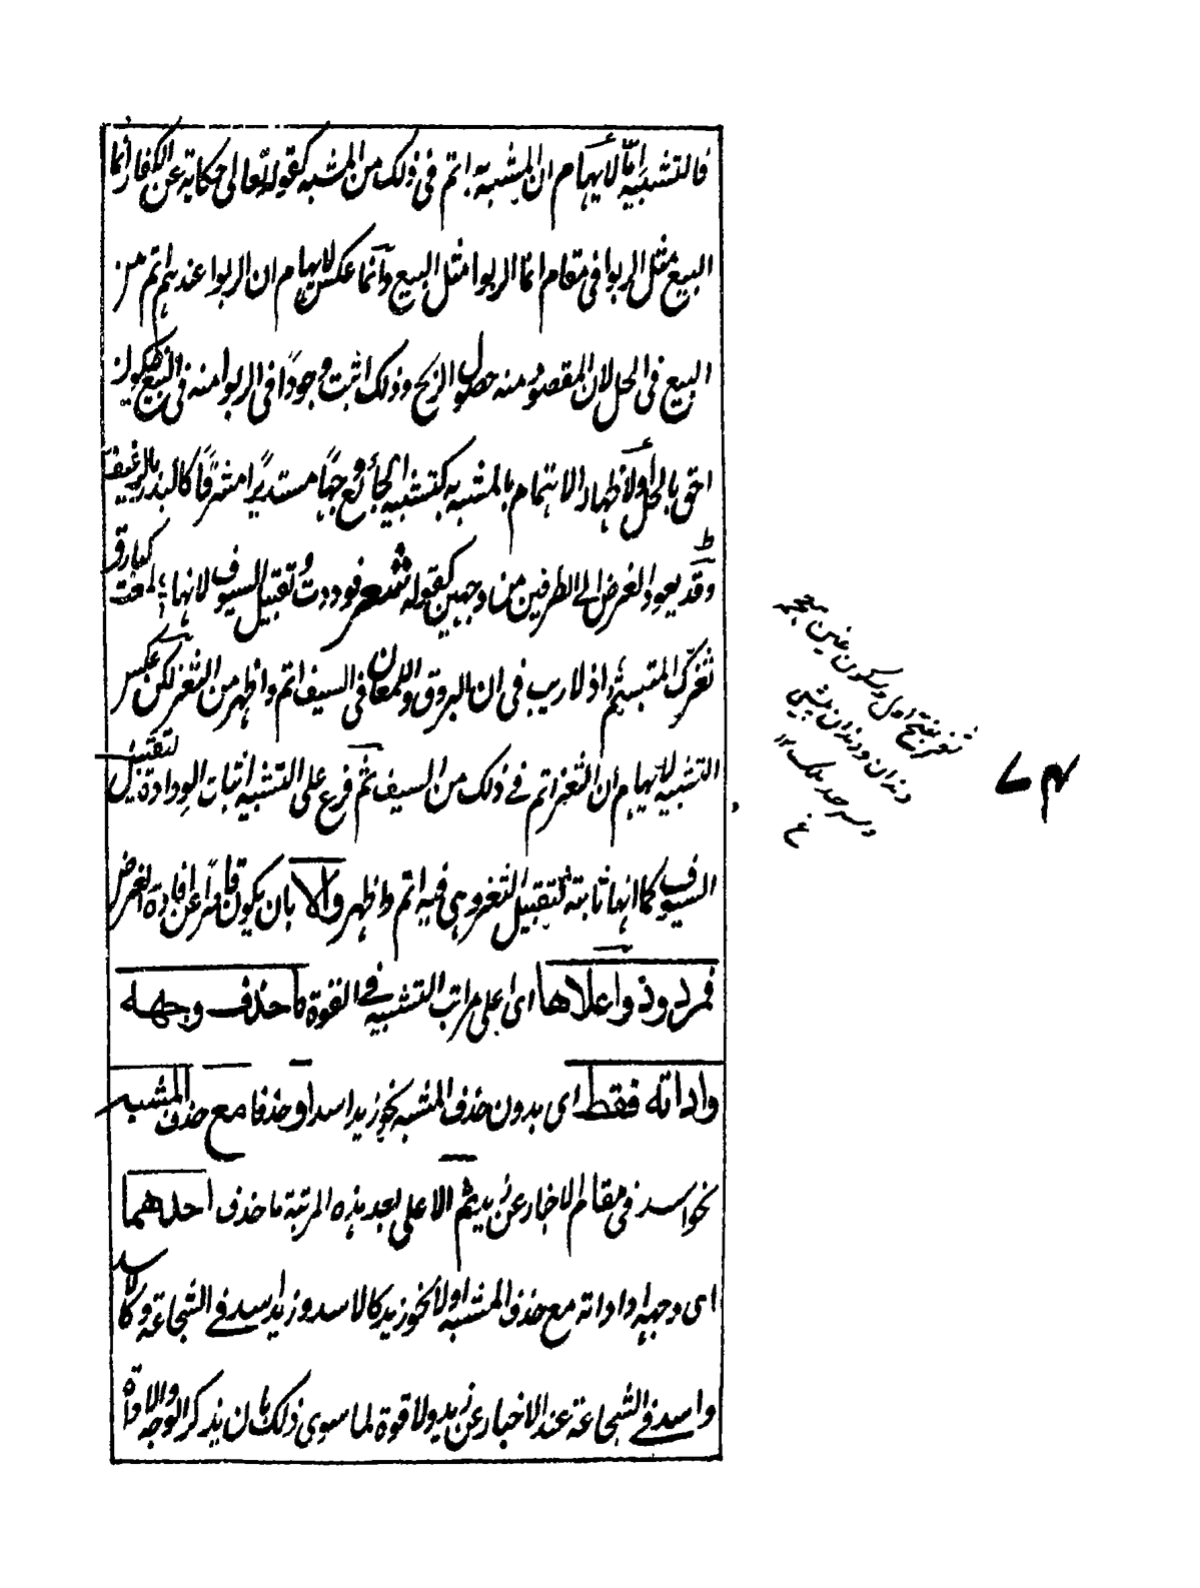 فالتشبيه اما لايهام ان المشبه به اتم فى ذلك من المشبه كقوله تعالى حكاية عن الكفار انما
البيع مثل الربوا فى مقام انما الربوا مثل البيع وانما عكس لايهام ان الربوا عندهم اتم من
البيع فى الحل لان المقصود منه حصول الربح وذلك اثبت وجودا فى الربوا منه فى البيع فيكون
احق بالحل او لاظهار الاهتمام بالمشبه به كتشبيه الجائع وجها مستديرا مشرقا كالبدر بالرغيف
وقد يعود الغرض الى الطرفين من وجهين كقوله شعر فوددت تقبيل السيوف لانها ؛ لمعت كبارق
ثغرك المتبسم ؛ اذ لا ريب فى ان البروق واللمعان فى السيف اتم واظهر من الثغر لكن عكس
التشبيه لايهام ان الثغر اتم فے ذلك من السيف ثم فرع على التشبيه اثبات الودادة لتقبيل
السيوف كما انها ثابتة لتقبيل الثغر وهى فيه اتم واظهر والا بان يكون قاصرا عن افادة الغرض
فمردود واعلاها اى اعلى مراتب التشبيه فے القوة ما حذف وجهه
واداته فقط اى بدون حذف المشبه نحو زيد اسد او حذفا مع حذف المشبه
نحو اسد فى مقام الاخبار عن زيد ثم الاعلى بعد هذه المرتبة ما حذف احدهما
اى وجهه او اداته مع حذف المشبه او لا نحو زيد كالاسد وزيد اسد فے الشجاعة وكالاسد
واسد فے الشجاعة عند الاخبار عن زيد ولا قوة لما سوى ذلك بان يذكر الوجه والاداة
ثغر بفتح اول وسكون غين معجمه
دندان ودندان پيشين
وسرحد ملك ١٢
غ
٧٤